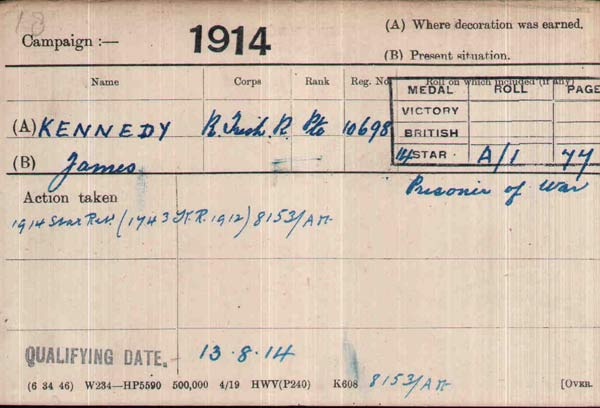 18
Campaign :— 1914
(A) Where decoration was earned.
(B) Present situation.
Name Corps Rank Reg. No. Roll on which included (if any)
MEDAL ROLL PAGE
VICTORY
BRITISH
14 STAR A/1 77
(A) KENNEDY R. Irish R. Pte 10698
(B) James
Prisoner of War
Action taken
1914 Star Ret. (1743 K.R. 1912) 8153/AM.
QUALIFYING DATE. 13.8.14
(6 34 46) W234—HP5590 500,000 4/19 HWV(P240) K608 8153/AM.
[OVER.